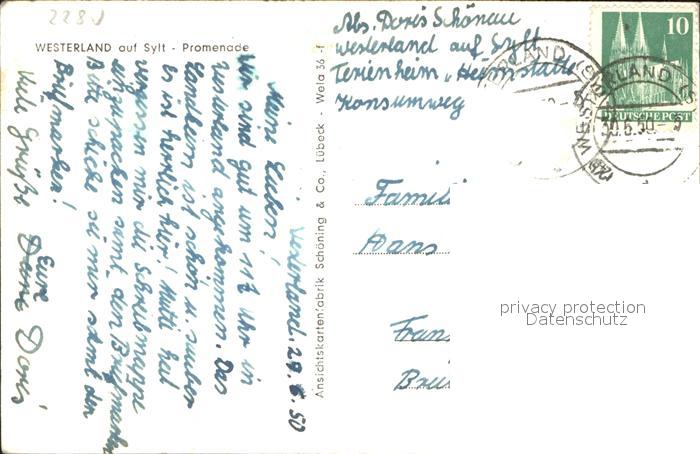 2281
WESTERLAND auf Sylt - Promenade
Westerland, 29.6.50
Meine Lieben!
Wir sind gut um 11¼ Uhr in
Westerland angekommen. Das
Landheim ist schön u. sauber
Es ist herrlich hier! Mutti hat
vergessen mir die Schreibmappe
einzupacken samt den Briefmarken
Bitte schicke sie mir samt den
Briefmarken!
Viele Grüße Eure
Deine Doris
Ansichtskartenfabrik Schöning & Co., Lübeck - Wella 36 f
Abs. Doris Schönau
Westerland auf Sylt
Ferienheim „Heimstätte
Konsumweg
10
DEUTSCHE POST
WESTERLAND (SYLT)
30.6.50
Famili
Hans
Fran
privacy protection
Datenschutz